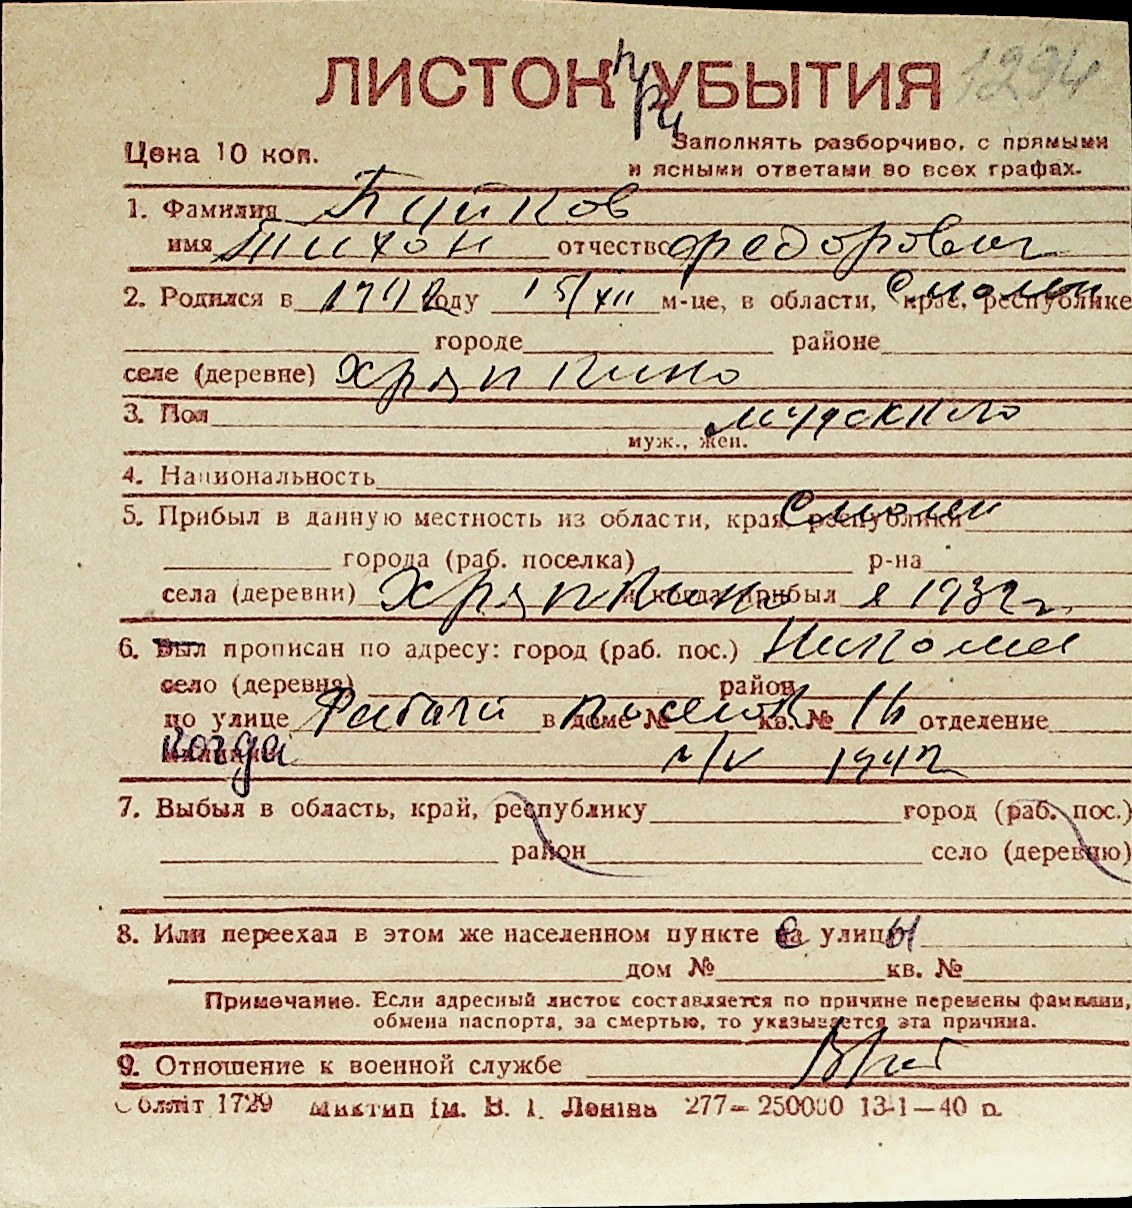 ЛИСТОК УБЫТИЯ 1294
Цена 10 коп.
Заполнять разборчиво, с прямыми
и ясными ответами во всех графах.
1. Фамилия
имя Тихон отчество Федорович
2. Родился в году 15/XII м-це, в области, крае, республике Смолен
городе районе
селе (деревне) Хряпкино
3. Пол мужского
муж., жен.
4. Национальность
5. Прибыл в данную местность из области, края, республики Смолен
города (раб. поселка) р-на
села (деревни) Хряпкино и когда прибыл в 1932 г
6. Был прописан по адресу: город (раб. пос.)
село (деревня) район
по улице в доме № поселок кв. № отделение
когда /V 1942
7. Выбыл в область, край, республику город (раб. пос.)
район село (деревню)
8. Или переехал в этом же населенном пункте с улицы
дом № кв. №
Примечание. Если адресный листок составляется по причине перемены фамилии,
обмена паспорта, за смертью, то указывается эта причина.
9. Отношение к военной службе
Обллiт 1729 Миктип iм. В. I. Ленiна 277—250000 13-1—40 р.